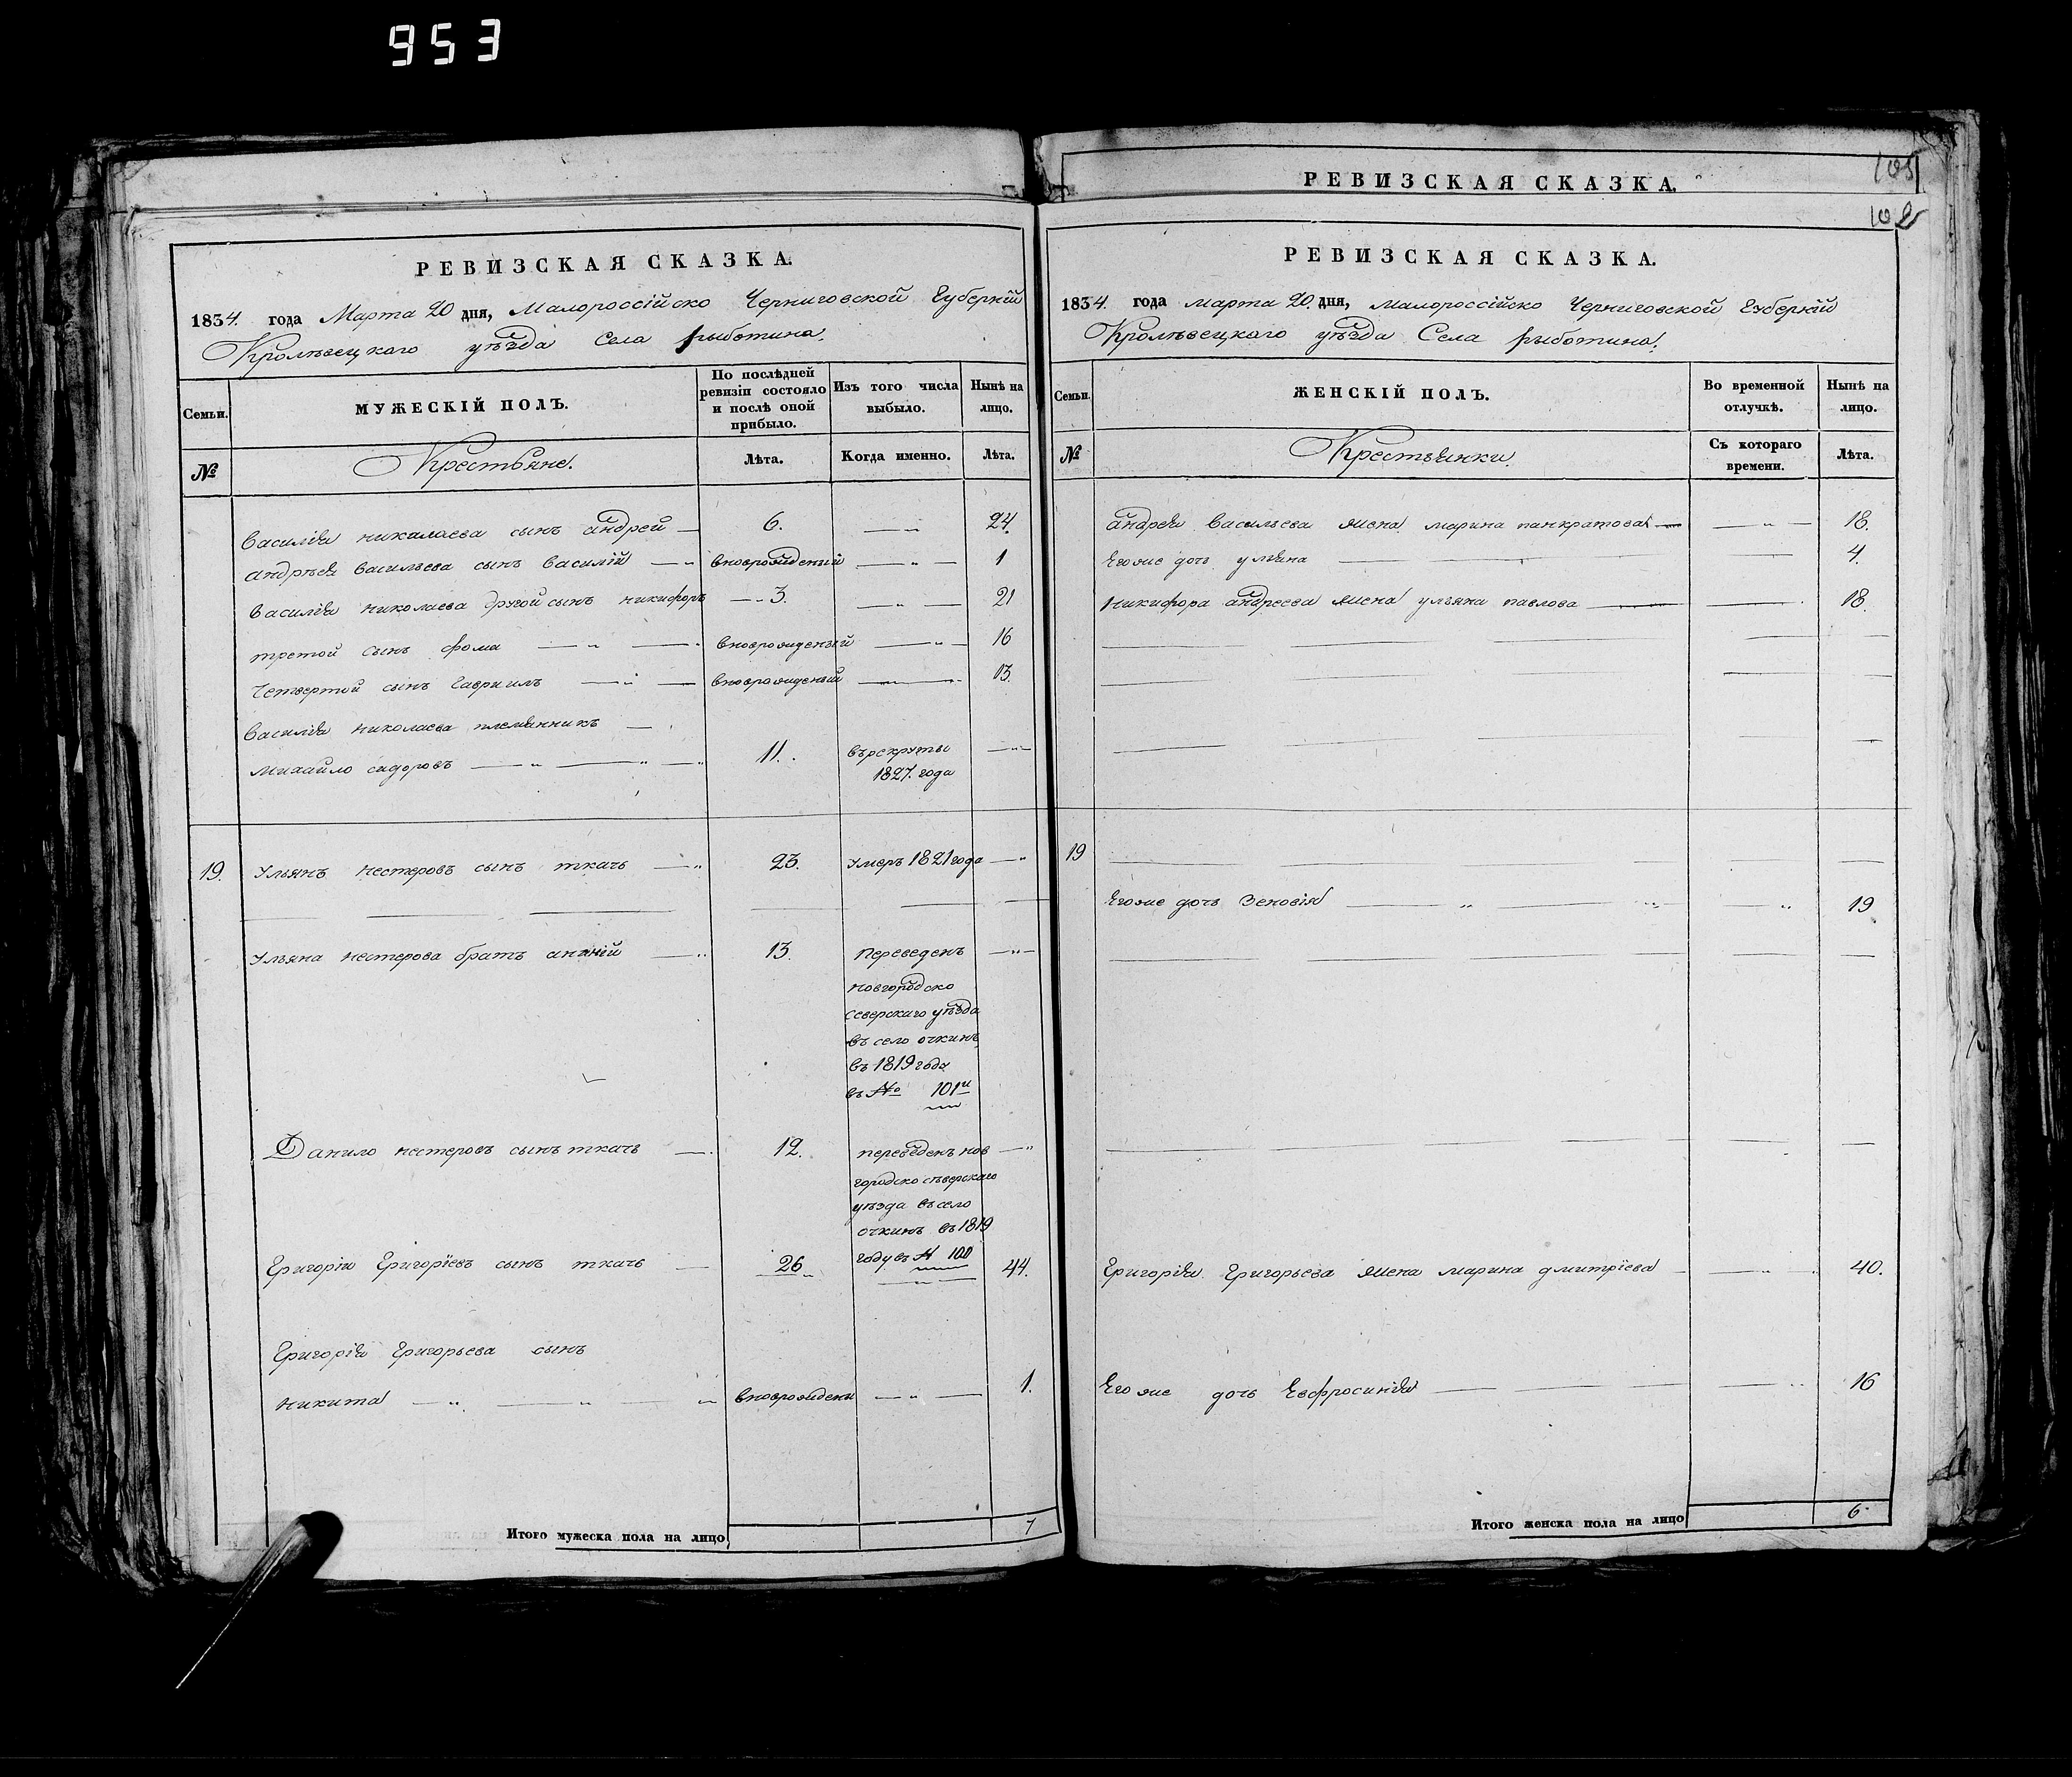 953
РЕВИЗСКАЯ СКАЗКА.
105
102
РЕВИЗСКАЯ СКАЗКА.
1834. года Марта 20 дня, Малороссійско Черниговской Губерніи
Кролѣвецкаго уѣзда Села рыботина.
Семьи. МУЖЕСКІЙ ПОЛЪ. По послѣдней ревизіи состояло и послѣ оной прибыло. Изъ того числа выбыло. Нынѣ на лицо.
№ Крестьяне. Лѣта. Когда именно. Лѣта.
Василія николаева сынъ андрей 6. 24.
андрѣя васильева сынъ василій вноврожденый 1
василія николаева другой сынъ никифоръ 3. 21
третой сынъ фома вноврожденый 16
четвертой сынъ гавриилъ вноврожденый 13.
василія николаева племянникъ
михайло сидоровъ 11. върекруты
1827. года
19. Ульянъ нестеровъ сынъ ткачь 23. умеръ 1821 года
Ульяна нестерова братъ 13. переведенъ
новгородско
северскаго уѣзда
въ село очкинъ
въ 1819 года
въ № 101й
Данило нестеровъ сынъ ткачь 12. переведенъ нов
городско сѣверскаго
уѣзда въ село
очкинъ въ 1819
году въ № 100
Григорій Григоріевъ сынъ ткачь 26 44.
Григорія Григорьева сынъ
никита вноврождени 1.
Итого мужеска пола на лицо 7
РЕВИЗСКАЯ СКАЗКА.
1834. года марта 20. дня, малороссійско Черниговской Губерніи
Кролѣвецкаго уѣзда Села рыботина.
Семьи. ЖЕНСКІЙ ПОЛЪ. Во временной отлучкѣ. Нынѣ на лицо.
№ Крестьянки. Съ котораго времени. Лѣта.
андрея васильева жена марина панкратова 18.
Егоже дочь ульяна 4.
никифора андреева жена ульяна павлова 18.
19
Егоже дочь Зеновія 19
Григорія Григорьева жена марина дмитріева 40.
Его же дочь Евфросинія 16
Итого женска пола на лицо 6